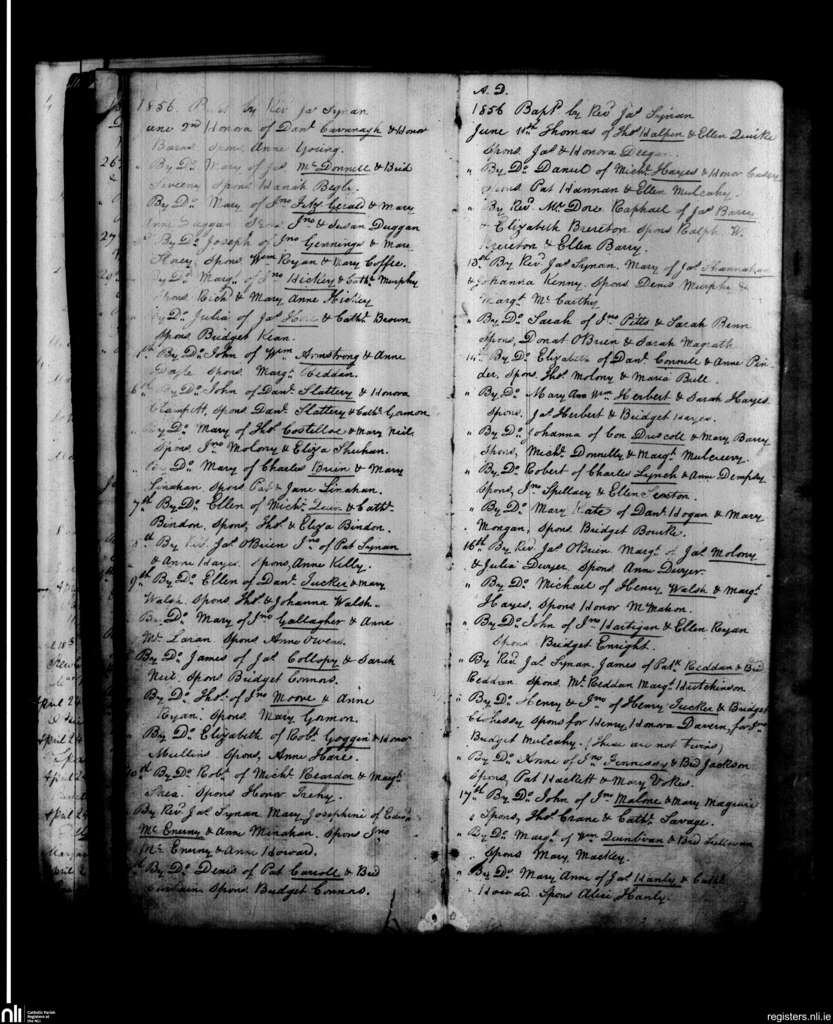 1856. Bapt by Rev Jas Synan
June 2nd Honora of Danl Cavanagh & Honor
Anne Young.
26 By Do Mary of Jas McDonnell & Brid
Sweeny Spons Hanah Begly.
By Do Mary of Jno Fitz Gerald & Mary
Anne Duggan Spons Jno & Susan Duggan
27 By Do Joseph of Jno Gennings & Mare
Spons Wm Ryan & Mary Coffee.
By Do Margt of Jno Hickey & Cathe Murphy
Spons Richd & Mary Anne Hickey
By Do Julia of Jas & Cathe Brown
Spons Bridget Kean.
1st By Do John of Wm Armstrong & Anne
Doyle Spons Margt Reddan.
6th By Do John of Danl Slattery & Honora
Clampett, Spons Danl Slattery & Cathe Gorman
By Do Mary of Thos Costelloe & Mary Neil
Spons Jno Molony & Eliza Shehan.
By Do Mary of Charles Brien & Mary
Linahan Spons Pat & Jane Linahan.
7th By Do Ellen of Michl Quin & Cathe
Bindon. Spons, Thos & Eliza Bindon.
" th By Rev Jas O'Brien Jno of Pat Synan
& Anne Hayes. Spons, Anne Kelly.
9th By Do Ellen of Danl Tucker & Mary
Walsh Spons Thos & Johanna Walsh.
By Do Mary of Jno Gallagher & Anne
Spons Anne Owens.
By Do James of Jas Collopy & Sarah
Neil Spons Bridget Connors.
By Do Thos of Jno Moore & Anne
Ryan. Spons. Mary Gorman.
By Do Elizabeth of Robt Goggin & Honor
Mullins Spons, Anne Hare.
10th By Do Robt of Michl Reardon & Margt
Shea. Spons Honor
By Rev Jas Synan Mary Josephine of Edwd
Mc Eneny & Anne Minahan. Spons Jno
Mc Eneny & Anne Howard.
By Do Denis of Pat Carroll & Brid
Spons Bridget Connors.
A. D.
1856 Bapt by Revd Jas Synan
June 11th Thomas of Thos Halpen & Ellen Quirke
Spons Jas & Honora Deegan.
" By Do Daniel of Michl Hayes & Honor Casey
Spons Pat Hannan & Ellen Mulcahy.
" By Revd Mr Dore Raphael of Jas Barry
& Elizabeth Brereton Spons Ralph W.
Brereton & Ellen Barry.
13th By Rev Jas Synan, Mary of Jas Shannahan
& Johanna Kenny. Spons Denis Murphy &
Margt McCarthy
" By Do Sarah of Jno Pitts & Sarah Benn
Spons, Donat O'Brien & Sarah Magrath
14th By Do Elizabeth of Danl Connell & Anne Pin
der. Spons, Thos Molony & Maria Bull.
" By Do Mary Ann Wm Herbert & Sarah Hayes
Spons. Jas Herbert & Bridget Hayes.
" By Do Johanna of Con Driscoll & Mary Barry
Spons, Michl Donnelly & Margt Mulcreevy.
" By Do Robert of Charles Lynch & Anne Dempsey
Spons, Jno Spellacy & Ellen Sexton.
" By Do Mary Kate of Danl Hogan & Mary
Mongan, Spons Bridget Bourke.
16th By Rev Jas O'Brien Margt of Jas Molony
& Julia Dwyer Spons Ann Dwyer.
" By Do Michael of Henry Walsh & Margt
Hayes. Spons Honor McMahon.
" By Do John of Jno Hartigan & Ellen Ryan
Spons Bridget Enright.
" By Revd Jas Synan, James of Patk Reddan & Brid
Reddan Spons Mt Reddan Margt Hutchinson
" By Do Henry & Jno of Henry Tucker & Bridget
Spons for Henry, Honora Davern, for Jno
Bridget Mulcahy. (these are not twins)
" By Do Anne of Jno Finnessy & Brd Jackson
Spons, Pat Hackett & Mary Vokes.
17th By Do John of Jno Malone & Mary Maguire
Spons, Thos Crane & Cathe Savage.
" By Do Margt of Wm Quinlivan & Brd Sullivan
Spons Mary Mackey.
" By Do Mary Anne of Jas Hanly & Cathe
Howard Spons Alice Hanly.
April 24
April 24
April 24
nli
Catholic Parish
Registers at
the NLI
registers.nli.ie